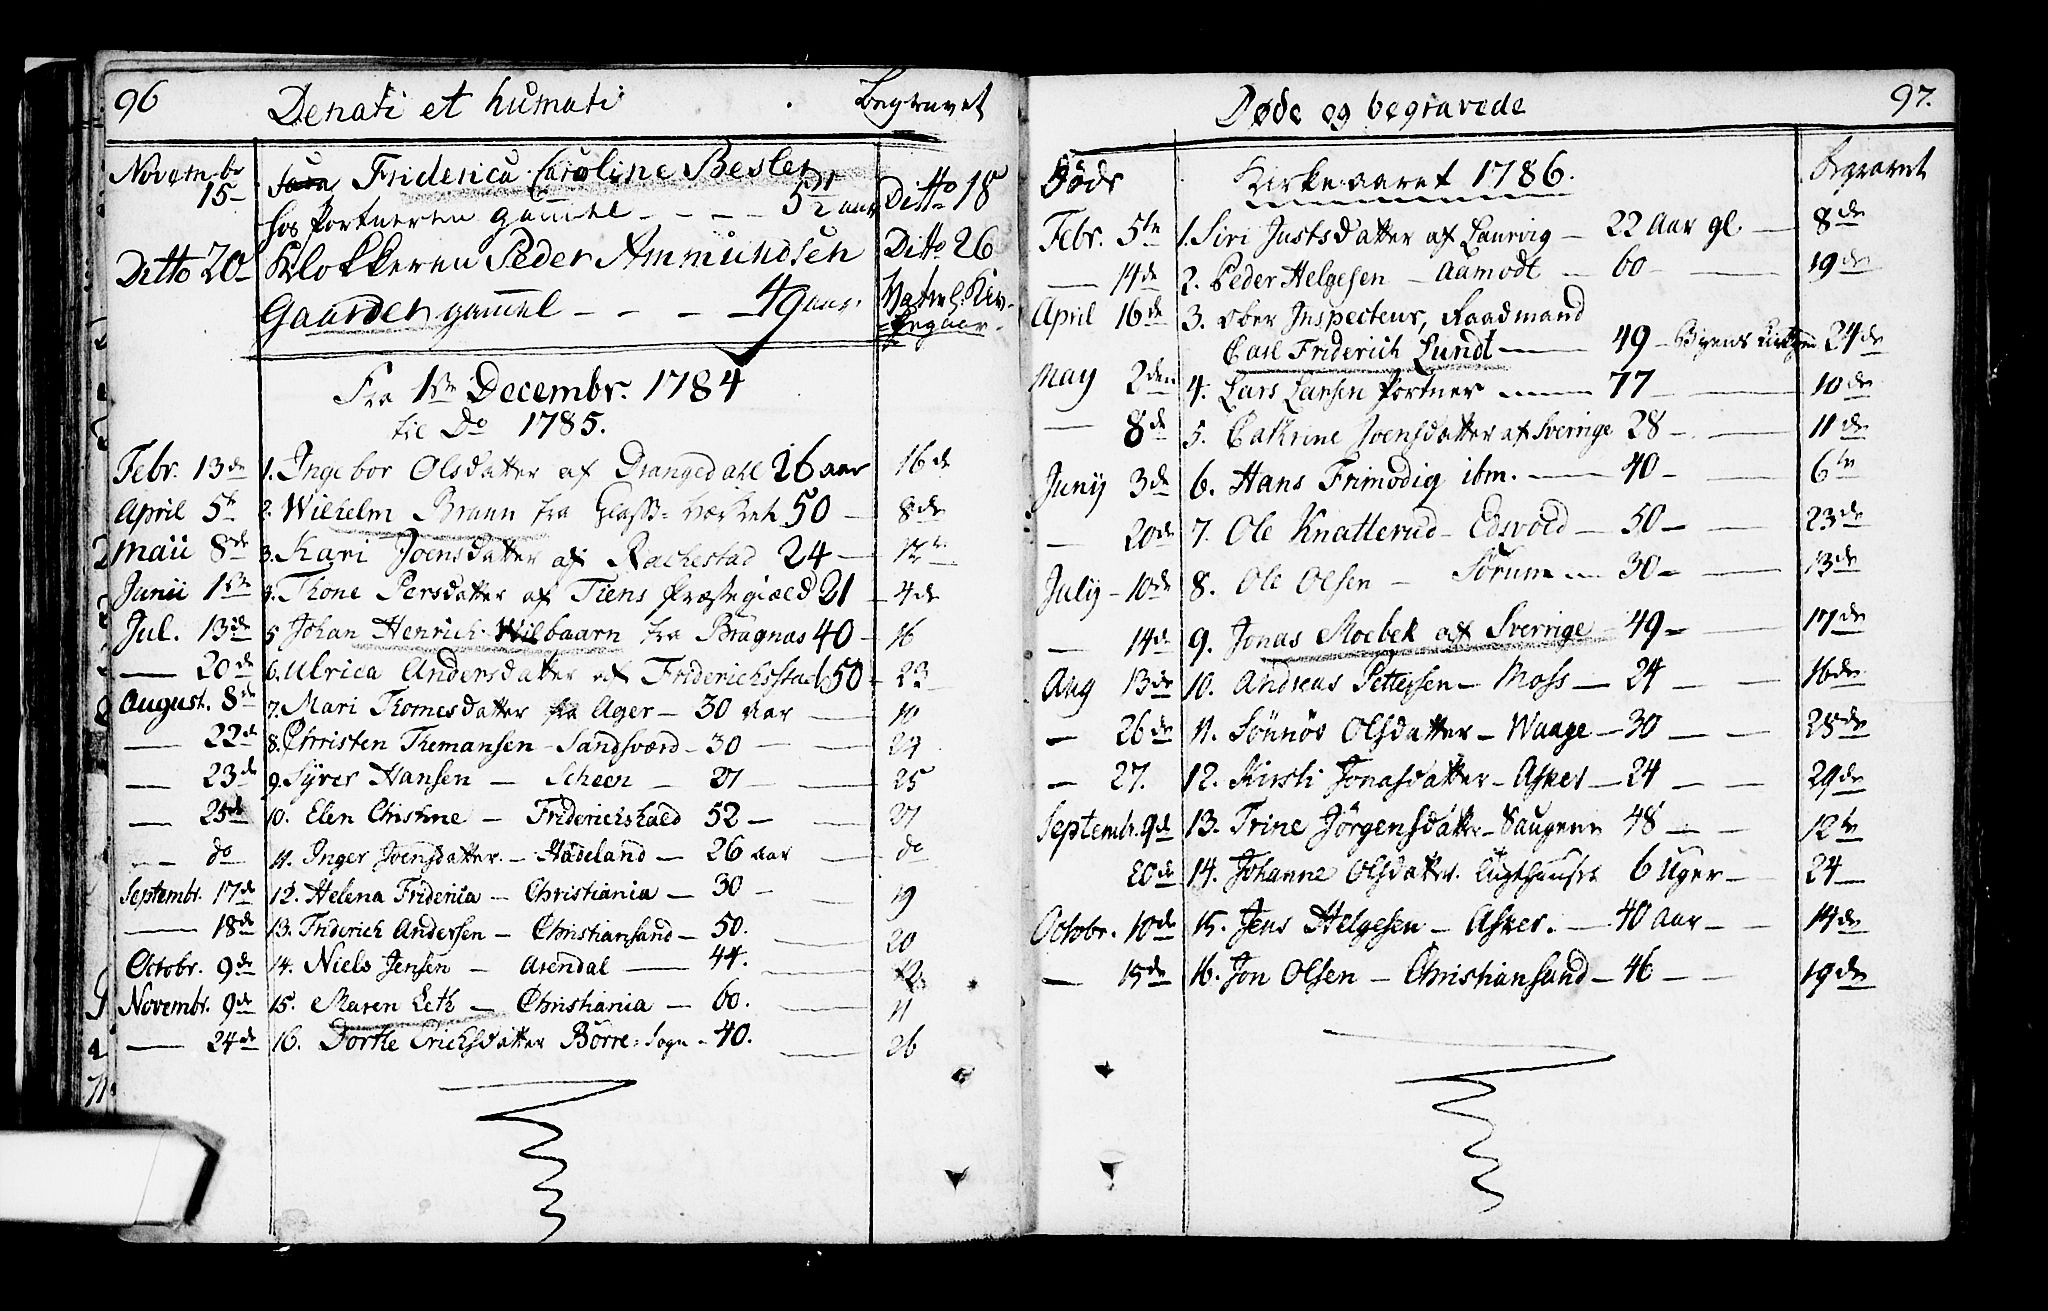 96 Denati et humati Begravet
Novembr Friderica Caroline Besler
15 hos Portneren gammel - - - - 5½ aar Ditto 18
Ditto 20 Klokkeren Peder Ammundsen Ditto 26
Gaarder gammel - - - 49 aar.
Fra 1ste Decembr. 1784
til Do 1785.
Febr. 13de 1. Ingebor Olsdatter af Drangedahl 26 aar 16de
April 5te 2. Wilhelm Braun fra 50 - 8de
Maii 8de 3. Kari Joensdatter af Rachestad 24 - 12te
Junii 1ste 4. Thone Persdatter af Tiens Præstegiæld 21 - 4de
Jul. 13de 5 Johan Henrich Wilbaarn fra Bragnæs 40 - 16
— 20de 6. Ulrica Andersdatter af Friderichsstad 50 - 23
August. 8de 7. Mari Thomesdatter fra Ager - 30 Aar — 10
— 22de 8. Christen Themansen - Sandsværd - 30 — 24
— 23de 9. Syver Hansen - Scheen - 27 — 25
— 25de 10. Elen Christine - Friderichshald 52 — 27
— do 11. Inger Joensdatter - Hadeland - 26 aar — do
Septembr. 17de 12. Helena Friderica - Christiania - 30 - 19
— 18de 13. Friderich Andersen - Christiansand - 50. 20
Octobr. 9de 14. Niels Jensen - Arendal — 44. 12
Novembr. 9de 15. Maren Leth - Christiania - 60. 11
— 24de 16. Dorthe Erichsdatter Börre-Sogn - 40. 26
Døde og begravede 97.
Døde Kirkeaaret 1786. Begravet
Febr. 5te 1. Siri Justsdatter af Laurvig - 22 Aar gl. — 8de
— 14de 2. Peder Helgesen - Aamodt - 60 - — 19de
April 16de 3. Ober Inspecteur, Raadmand
Carl Friderich Lundt — 49 - Byens 24de
May 2den 4. Lars Larsen Portner — 77 - — 10de
— 8de 5. Cathrine Joensdatter af Sverrige 28 - — 11de
Junij 3de 6. Hans Frimodig ibm. — 40 - 6te
— 20de 7. Ole Knatterud - Edsvold - 50 - — 23de
Julij - 10de 8. Ole Olsen - Sörum - 30 - — 13de
— 14de 9. Jonas Moebek af Sverrige - 49 - — 17de
Aug 13de 10. Andreas Pettersen - Moss - 24 - — 16de
— 26de 11. Sönnös Olsdatter - Waage - 30 — 28de
— 27. 12. Kirsti Jonasdatter - Asker - 24 — 29de
Septembr. 9de 13. Trine Jörgensdatter - Saugene 48 - — 12te
20de 14. Johanne Olsdatter. Tugthuuset 6 Uger - 24 —
Octobr. 10de 15. Jens Helgesen - Asker. — 40 Aar - - 14de
— 15de 16. Jon Olsen - Christiansand - 46 - - 19de